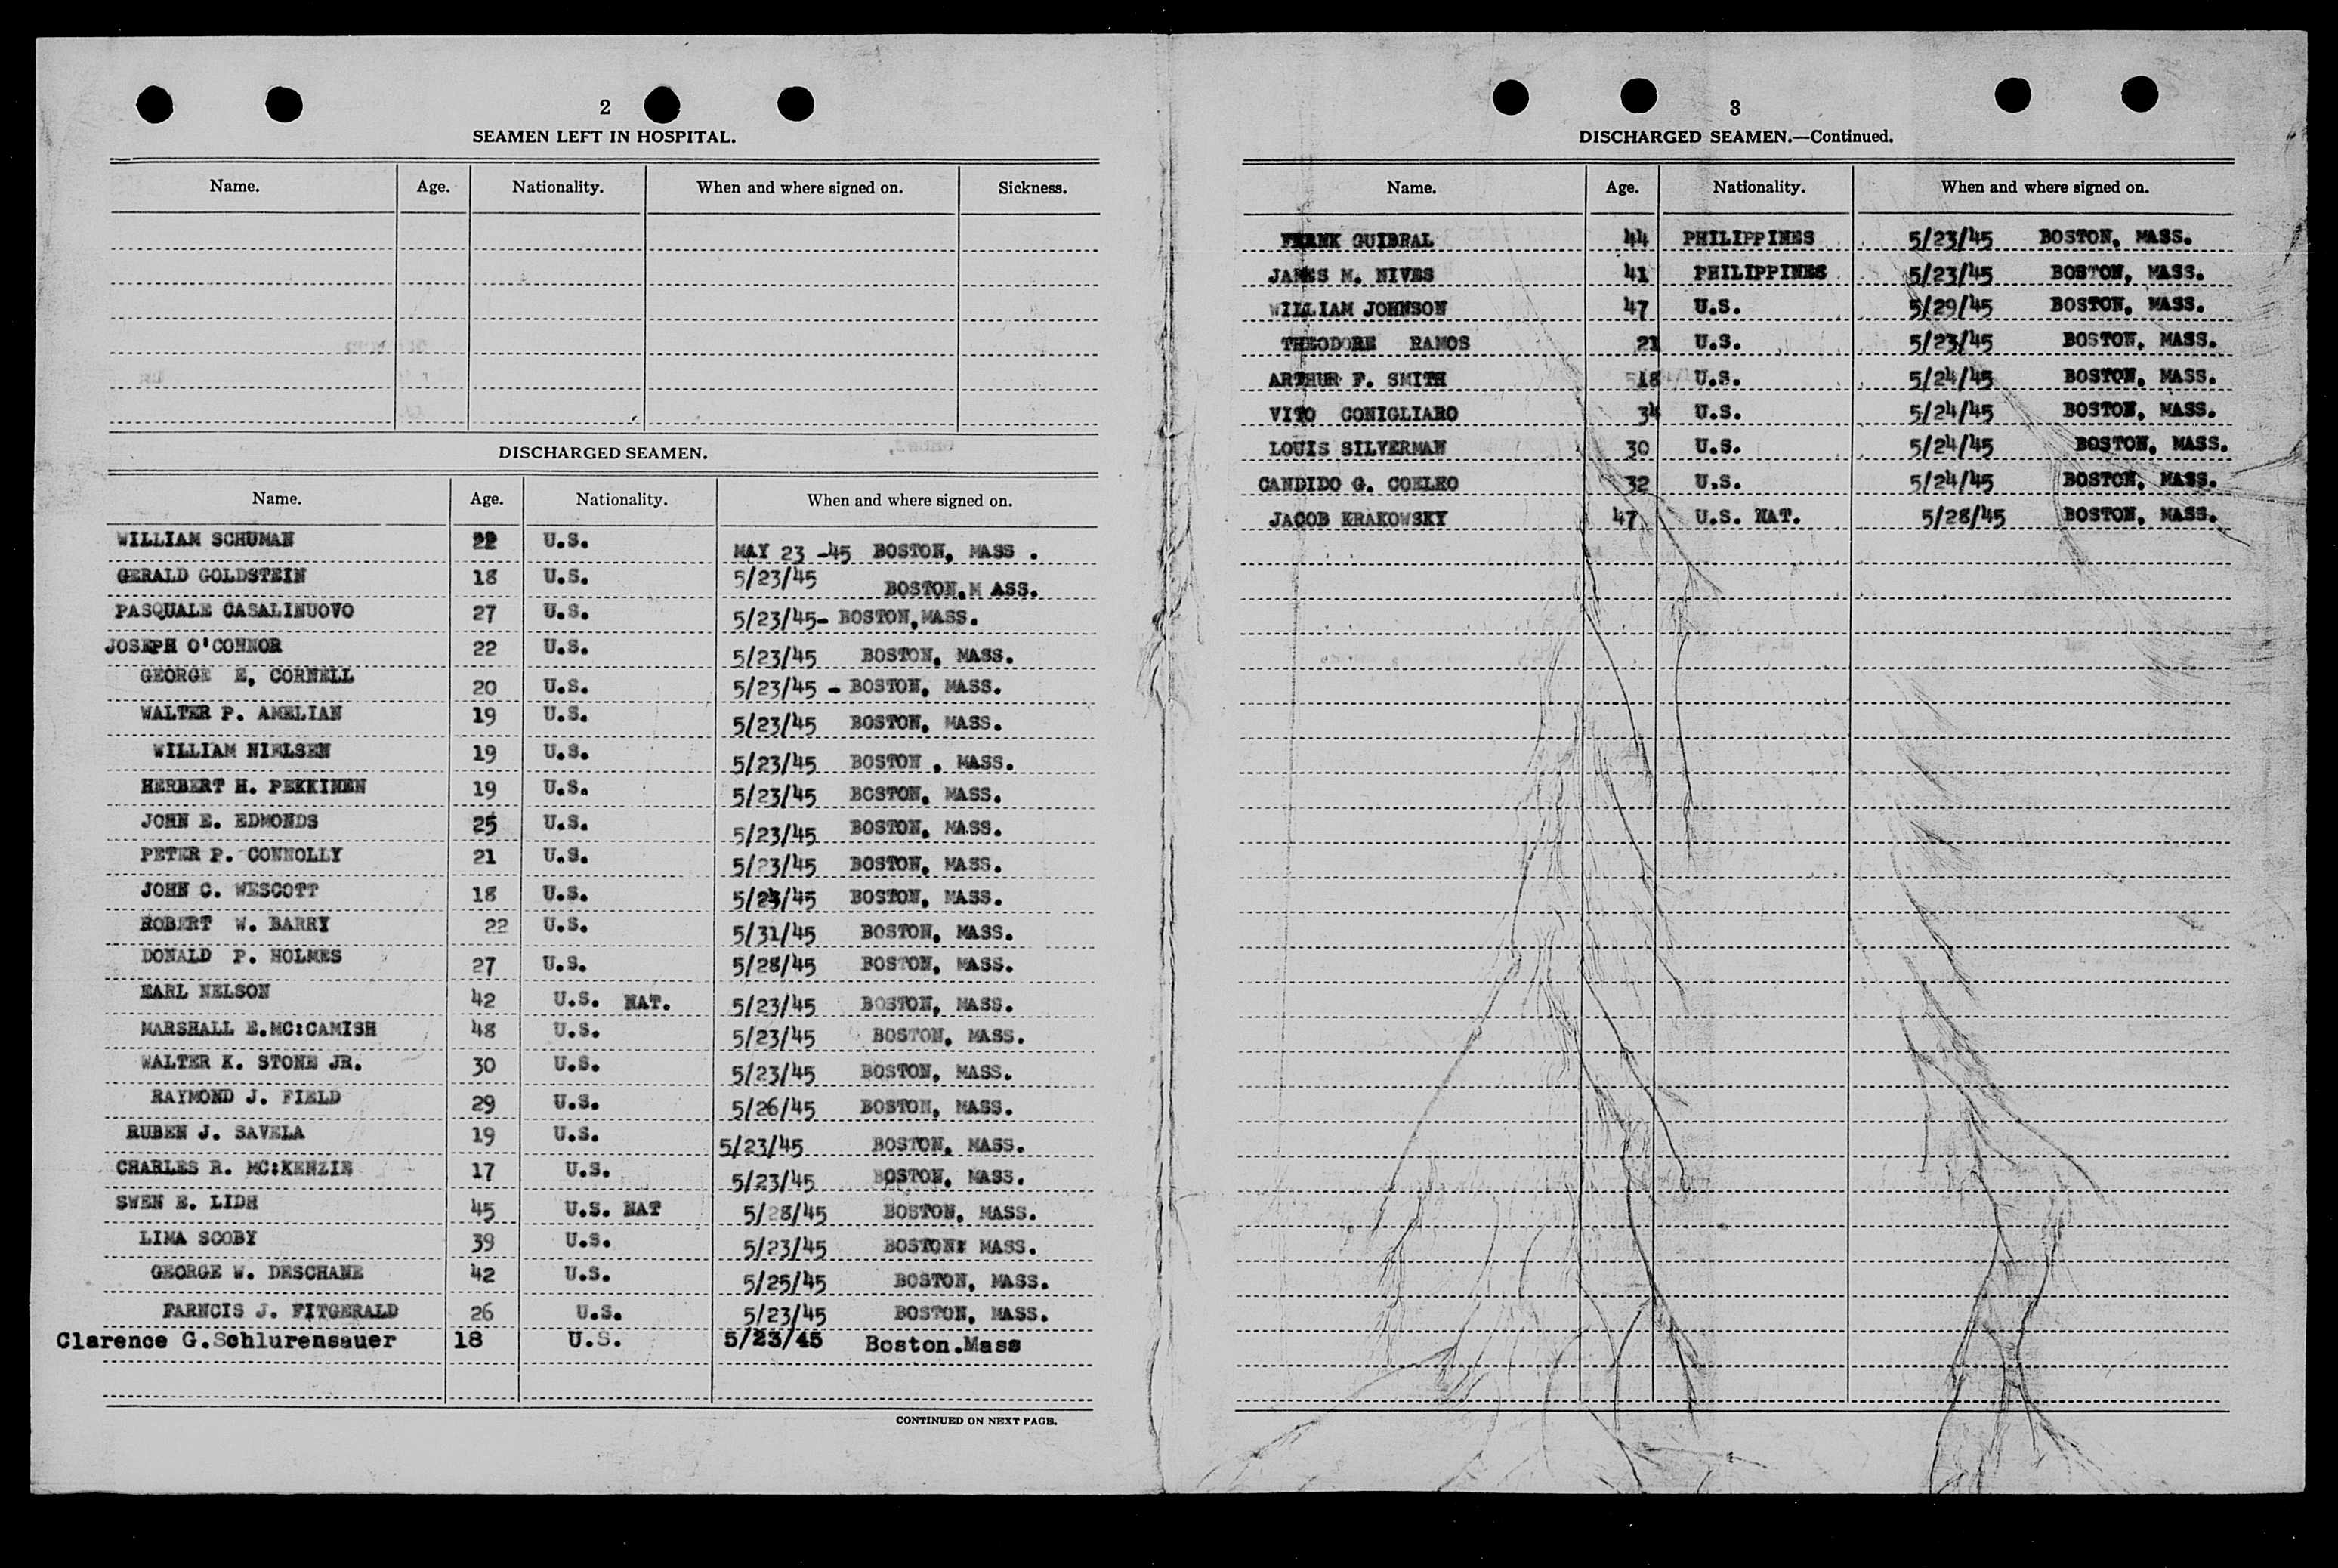 2
SEAMEN LEFT IN HOSPITAL.
Name. Age. Nationality. When and where signed on. Sickness.
DISCHARGED SEAMEN.
Name. Age. Nationality. When and where signed on.
WILLIAM SCHUMAN 22 U.S. MAY 23 -45 BOSTON, MASS .
GERALD GOLDSTEIN 18 U.S. 5/23/45 BOSTON,M ASS.
PASQUALE CASALINUOVO 27 U.S. 5/23/45- BOSTON,MASS.
JOSEPH O'CONNOR 22 U.S. 5/23/45 BOSTON, MASS.
GEORGE E, CORNELL 20 U.S. 5/23/45 - BOSTON, MASS.
WALTER P. AMELIAN 19 U.S. 5/23/45 BOSTON, MASS.
WILLIAM NIELSEN 19 U.S. 5/23/45 BOSTON , MASS.
HERBERT H. PEKKINEN 19 U.S. 5/23/45 BOSTON, MASS.
JOHN E. EDMONDS 25 U.S. 5/23/45 BOSTON, MASS.
PETER P. CONNOLLY 21 U.S. 5/23/45 BOSTON, MASS.
JOHN C. WESCOTT 18 U.S. BOSTON, MASS.
ROBERT W. BARRY 22 U.S. 5/31/45 BOSTON, MASS.
DONALD P. HOLMES 27 U.S. 5/28/45 BOSTON, MASS.
EARL NELSON 42 U.S. NAT. 5/23/45 BOSTON, MASS.
MARSHALL E.MC:CAMISH 48 U.S. 5/23/45 BOSTON, MASS.
WALTER K. STONE JR. 30 U.S. 5/23/45 BOSTON, MASS.
RAYMOND J. FIELD 29 U.S. 5/26/45 BOSTON, MASS.
RUBEN J. SAVELA 19 U.S. 5/23/45 BOSTON, MASS.
CHARLES R. MC:KENZIE 17 U.S. 5/23/45 BOSTON, MASS.
SWEN E. LIDH 45 U.S. NAT 5/28/45 BOSTON, MASS.
LIMA SCOBY 39 U.S. 5/23/45 BOSTON: MASS.
GEORGE W. DESCHANE 42 U.S. 5/25/45 BOSTON, MASS.
FARNCIS J. FITGERALD 26 U.S. 5/23/45 BOSTON, MASS.
Clarence G.Schlurensauer 18 U.S. 5/23/45 Boston.Mass
CONTINUED ON NEXT PAGE.
3
DISCHARGED SEAMEN.—Continued.
Name. Age. Nationality. When and where signed on.
GUIBRAL 44 PHILIPPINES 5/23/45 BOSTON, MASS.
JAMES M. NIVES 41 PHILIPPINES 5/23/45 BOSTON, MASS.
WILLIAM JOHNSON 47 U.S. 5/29/45 BOSTON, MASS.
THEODORE RAMOS 21 U.S. 5/23/45 BOSTON, MASS.
ARTHUR F. SMITH 18 U.S. 5/24/45 BOSTON, MASS.
VITO CONIGLIARO 34 U.S. 5/24/45 BOSTON, MASS.
LOUIS SILVERMAN 30 U.S. 5/24/45 BOSTON, MASS.
CANDIDO G. COELEO 32 U.S. 5/24/45 BOSTON, MASS.
JACOB KRAKOWSKY 47 U.S. NAT. 5/28/45 BOSTON, MASS.